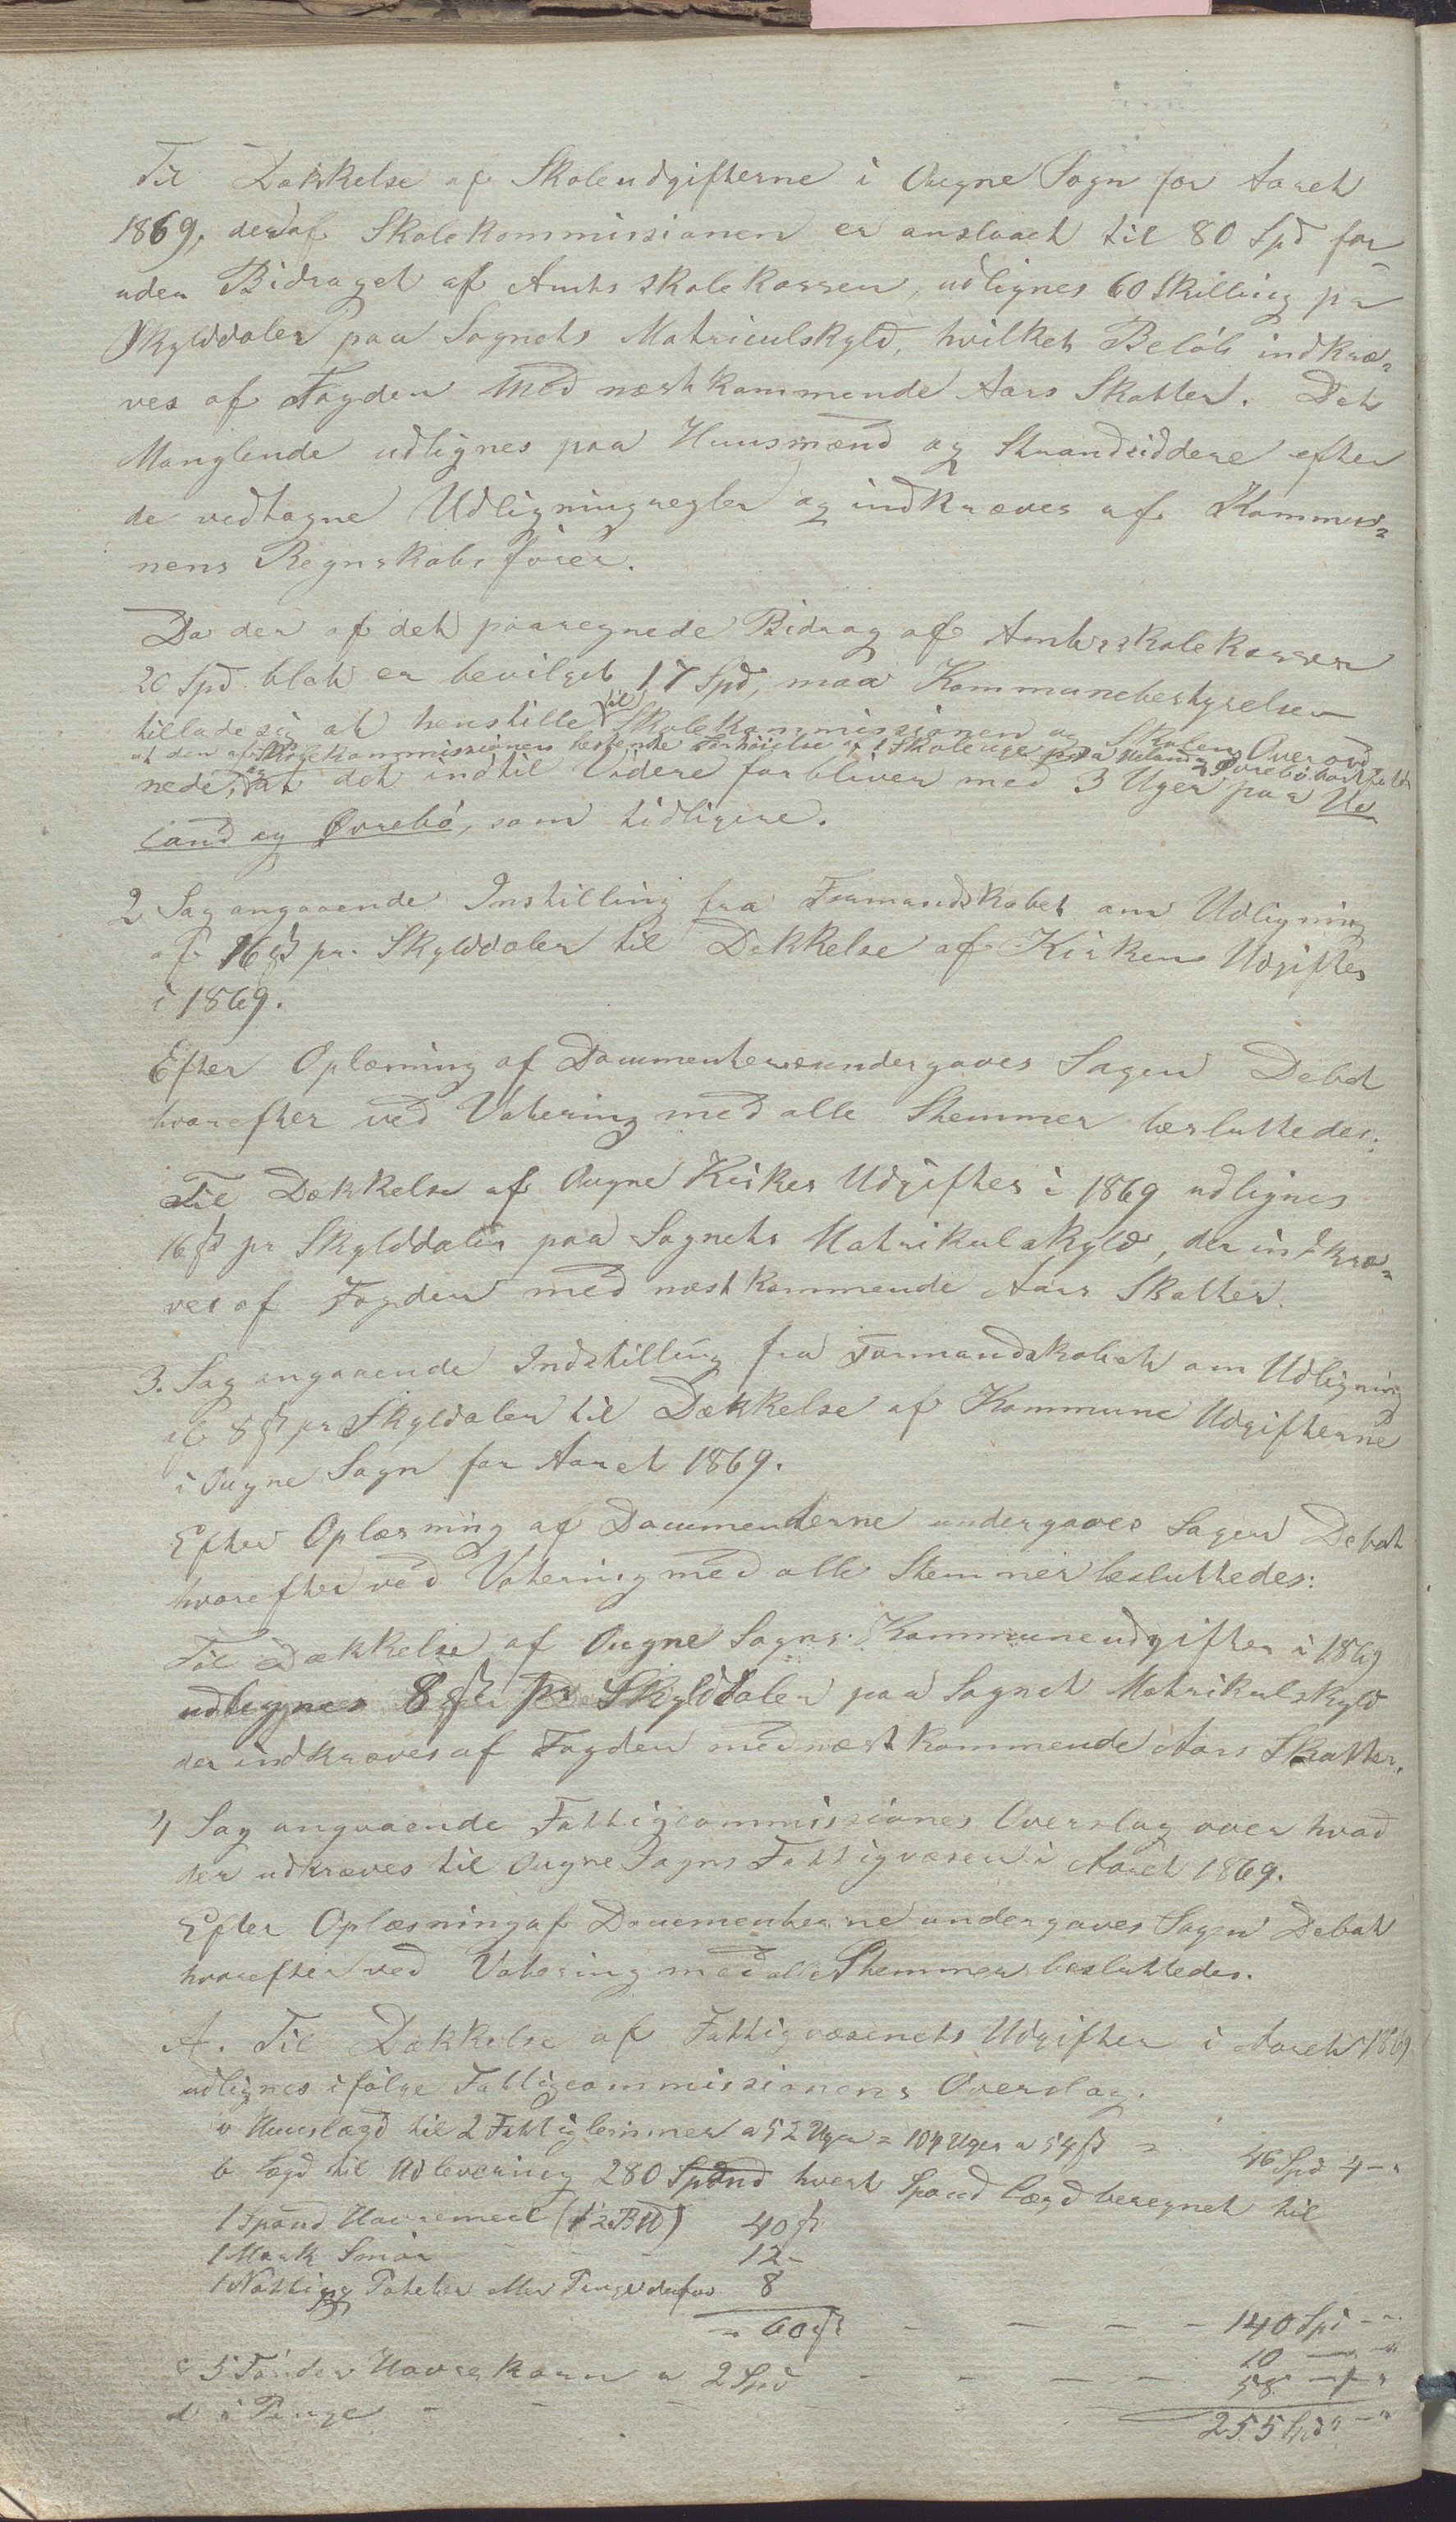 Til Dækkelse af Skoleudgifterne i Ougne Sogn for Aaret
1869, der af Skolekommissionen er anslaaet til 80 Spd for-
uden Bidraget af Amtsskolekassen, udlignes 60 Skilling pr
Skylddaler paa Sognets Matriculskyld, hvilket Beløb indkræ-
ves af Fogden med næstkommende Aars Skatter. Det
Manglende udlignes paa Huusmænd og Strandsiddere efter
de vedtagne Udligningregler og indkræves af Kommu-
nens Regnskabsfører.
Da der af det paaregnede Bidrag af Amtsskolekassen
20 Spd blot er bevilget 17 Spd, maa Kommunebestyrelsen
tillade sig at henstille til Skolekommissionen og Skolens Overord
at den af Skolekommissionen bestemte Forhøielse af 1 Skoleuge paa Ueland og Øvrebø bortfalder
nede, og at det indtil Videre forbliver med 3 Uger paa Ue
land og Øvrebø, som tidligere.
2 Sag angaaende Instilling fra Formandskabet om Udligning
af 16 ß pr. Skylddaler til Dekkelse af Kirkens Udgifter
i 1869.
Efter Oplæsning af Documenterne undergaves Sagen Debat
hvorefter ved Votering med alle Stemmer besluttedes:
Til Dækkelse af Ougne Kirkes Udgifter i 1869 udlignes
16 ß pr Skylddaler paa Sognets Matrikulskyld, der indkræ-
ves af Fogden med næstkommende Aars Skatter.
3. Sag angaaende Indstilling fra Formandskabet om Udligning
af 8 ß pr Skyldaler til Dækkelse af Kommune Udgifterne
i Ougne Sogn for Aaret 1869.
Efter Oplæsning af Documenterne undergaves Sagen Debat
hvorefter ved Votering med alle Stemmer besluttedes:
Til Dækkelse af Ougne Sogns Kommuneudgifter i 1869
udlignes 8 ß pr Skylddaler paa Sognet Matrikulskyld
der indkræves af Fogden med næstkommende Aars Skatter.
4 Sag angaaende Fattigcommissiones Overslag over hvad
der udkræves til Ougne Sogns Fattigvæsen i Aaret 1869.
Efter Oplæsning af Documenterne undergaves Sagen Debat
hvorefter ved Votering med alle Stemmer besluttedes.
A. Til Dækkelse af Fattigvæsenets Udgifter i Aaret 1869
udlignes ifølge Fattigcommissionens Overslag.
a Huuslægd til 2 Fattiglemmer a 52 Uger = 104 Uger a 54 ß = 46 Spd 4 – "
b Lægd til Udlevering 280 Spand hvert Spand Lægd beregnet til
1 Spand Havremeel (12 B℔) 40 ß
1 Mark Smør – – 12 –
1 Nætting Poteter eller Penge derfor 8
" 60 ß – – – – 140 Spd – "
c 5 Tønder Havrekorn a 2 Spd – – – – 10 – – "
d i Penge – – – – 58 – 1 – "
255 Spd " – "